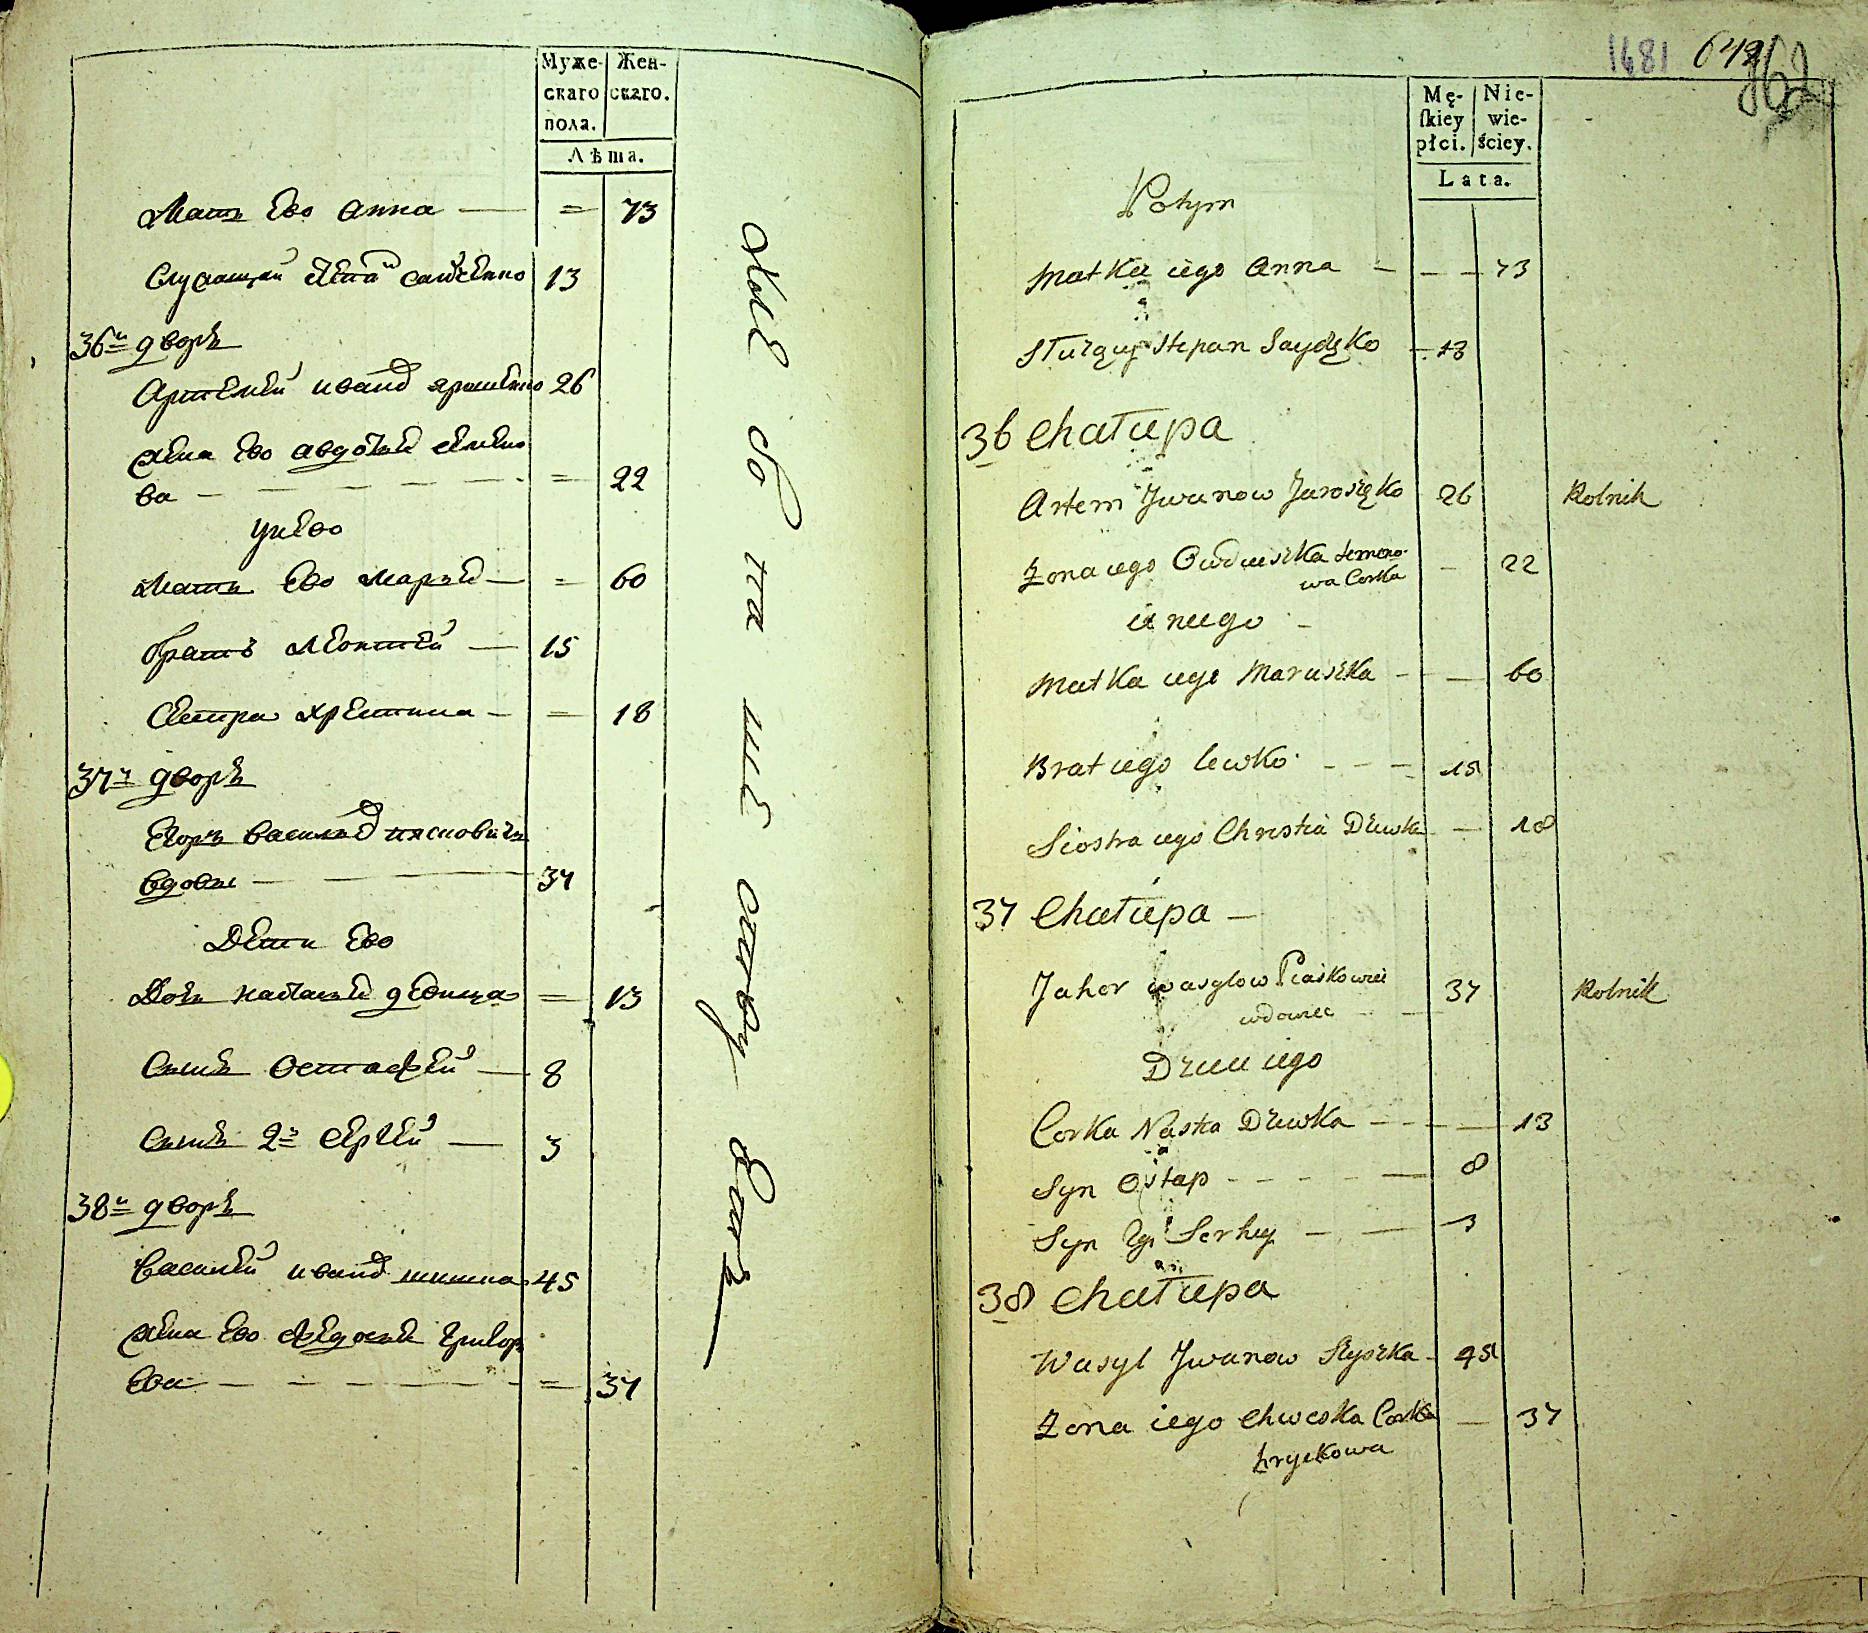 Муже-
скаго
пола.
Жен-
скаго.
Лѣта.
Мать ево Анна — = 73
Служащий 13
36й дворъ
Артемей Иванов Ярошенко 26
Жена ево Авдотья Семено
ва — — — — = 22
У нево
Мать ево Марья — = 60
Братъ Леонтей — 15
Сестра Христина — = 18
37й дворъ
Егоръ Васильев Пясковичъ
вдовы — — — 37
Дети ево
Дочь Настасья девица = 13
Сынъ Остафей — 8
Сынъ 2й Сергей — 3
38й дворъ
Василей Иванов Шишка 45
Жена ево Федосья Григор
ева — — — — — = 37
1681 642 362
Mę-
skiey
płci.
Nie-
wie-
ściey.
Lata.
Potym
Matka iego Anna — — — 73
Służący Stepan Saydzko — 13
36 Chałupa
Artem Jwanow Jaroszko 26 Rolnik
Żona iego Owdieszka Semeno-
wa Corka — 22
u niego —
Matka iego Maruszka — — 60
Brat iego Lewko — — — 15
Siostra iego Christia Dziewka — 18
37 Chałupa —
Jahor Wasylow Piaskowicz 37 Rolnik
wdowiec — —
Dzieci iego
Corka Nastia Dziewka — — — 13
Syn Ostap — — — — — 8
Syn 2gi Serhey — — 3
38 Chałupa
Wasyl Jwanow Szyszka — 45
Żona iego Chweska Corka — 37
Hryckowa